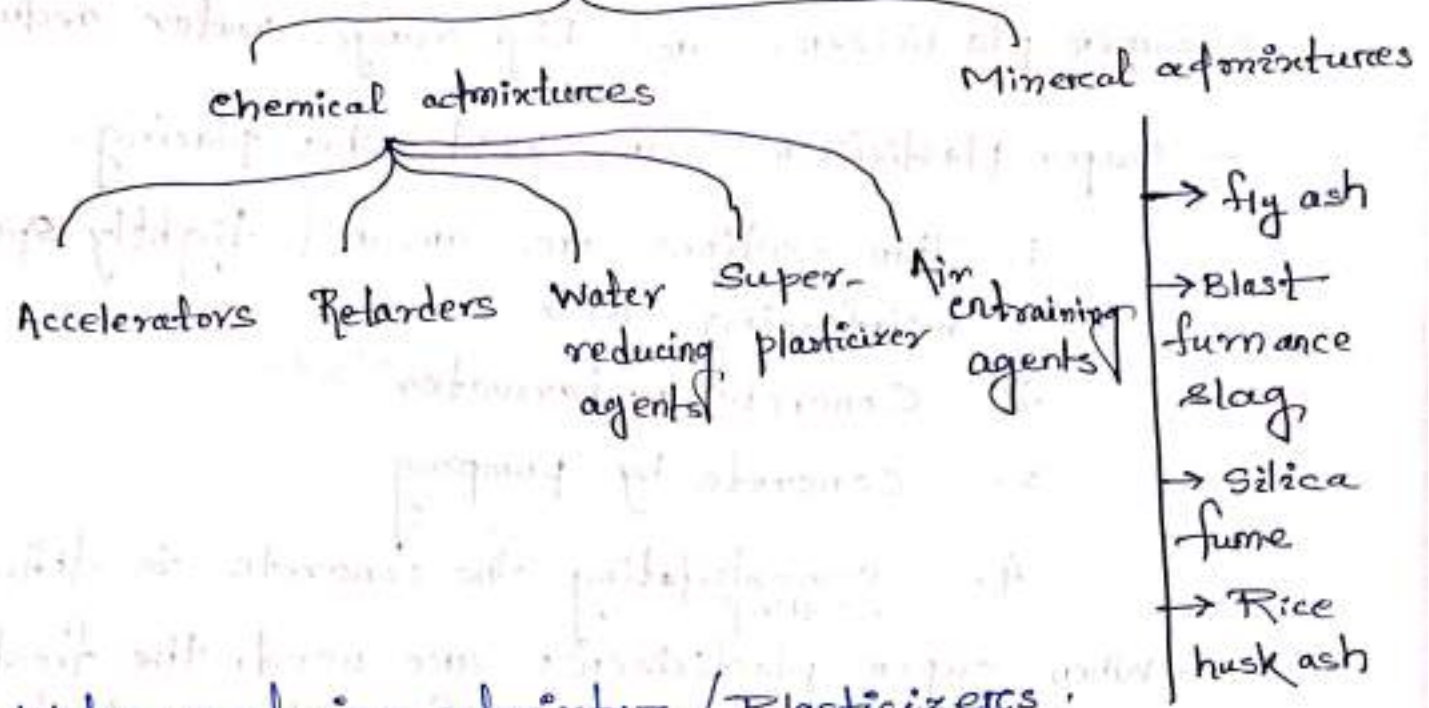 Chemical admixtures
Mineral admixtures
Accelerators
Retarders
Water
reducing
agents
Super-
plasticizer
Air
entraining
agents
→ fly ash
→ Blast
furnance
slag
→ Silica
fume
→ Rice
husk ash
/ Plasticizers :